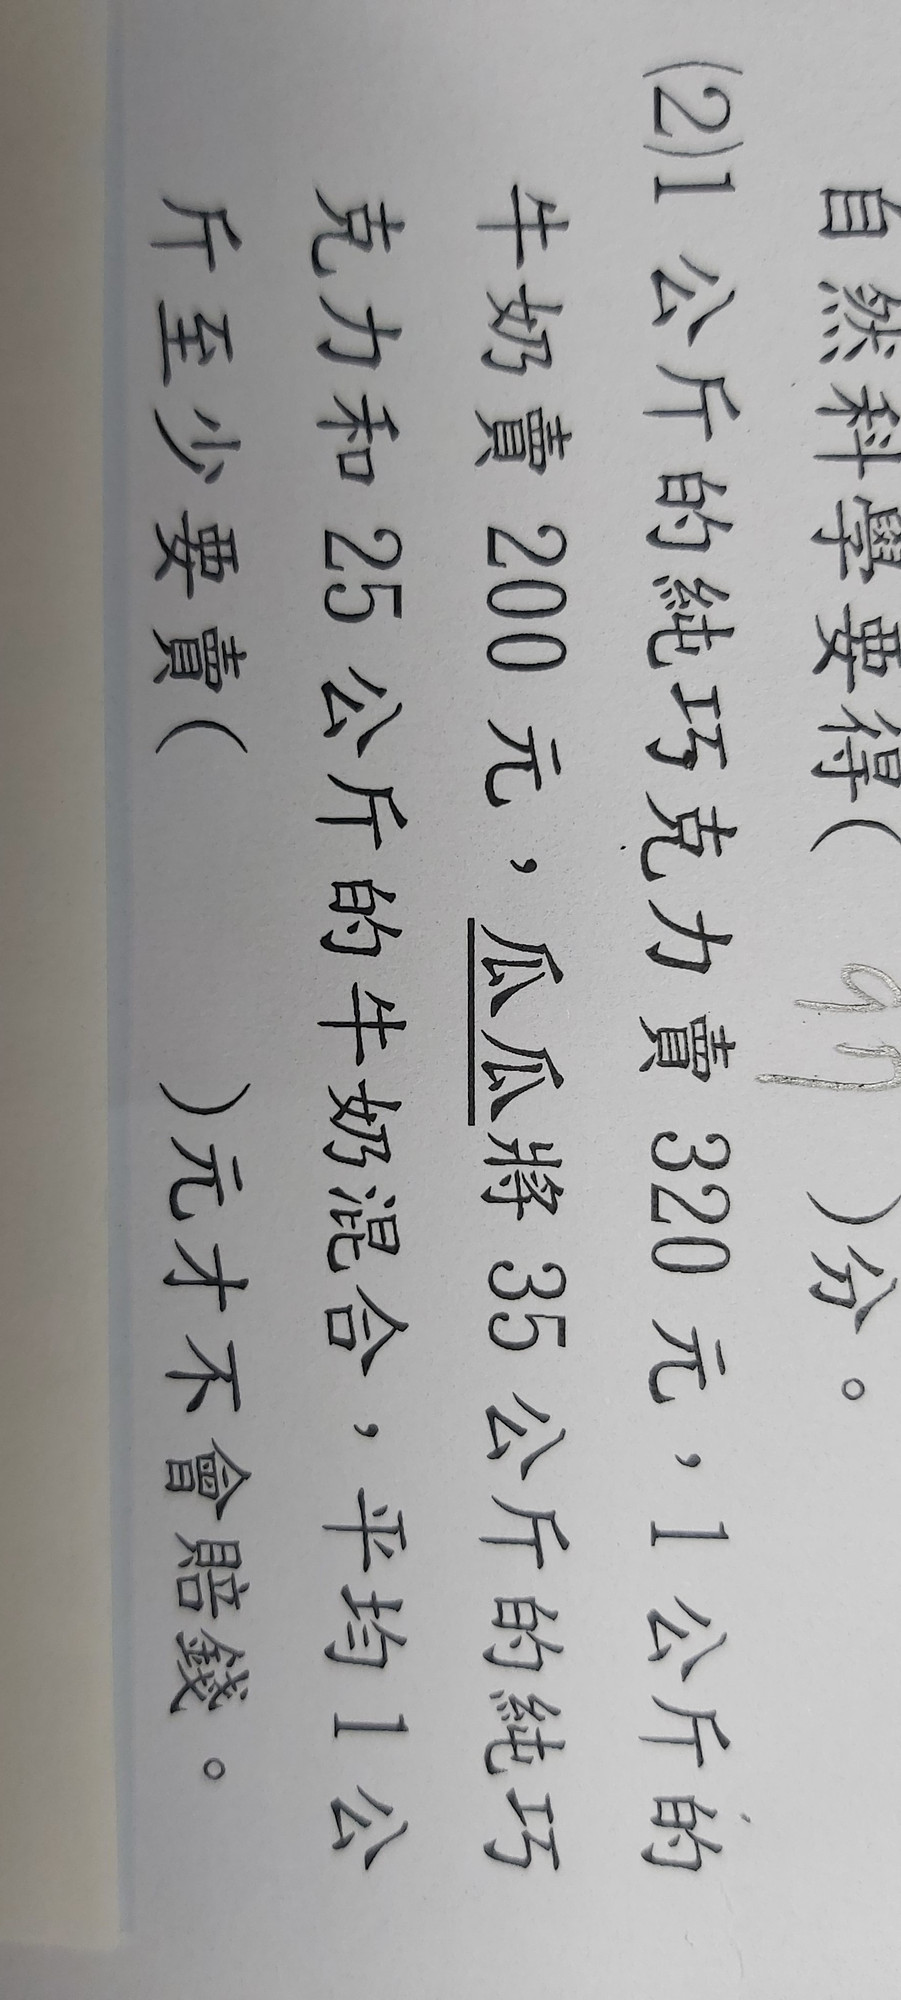 自然科學要得( 97 )分。
(2)1 公斤的純巧克力賣 320 元，1 公斤的
牛奶賣 200 元，瓜瓜將 35 公斤的純巧
克力和 25 公斤的牛奶混合，平均 1 公
斤至少要賣( )元才不會賠錢。